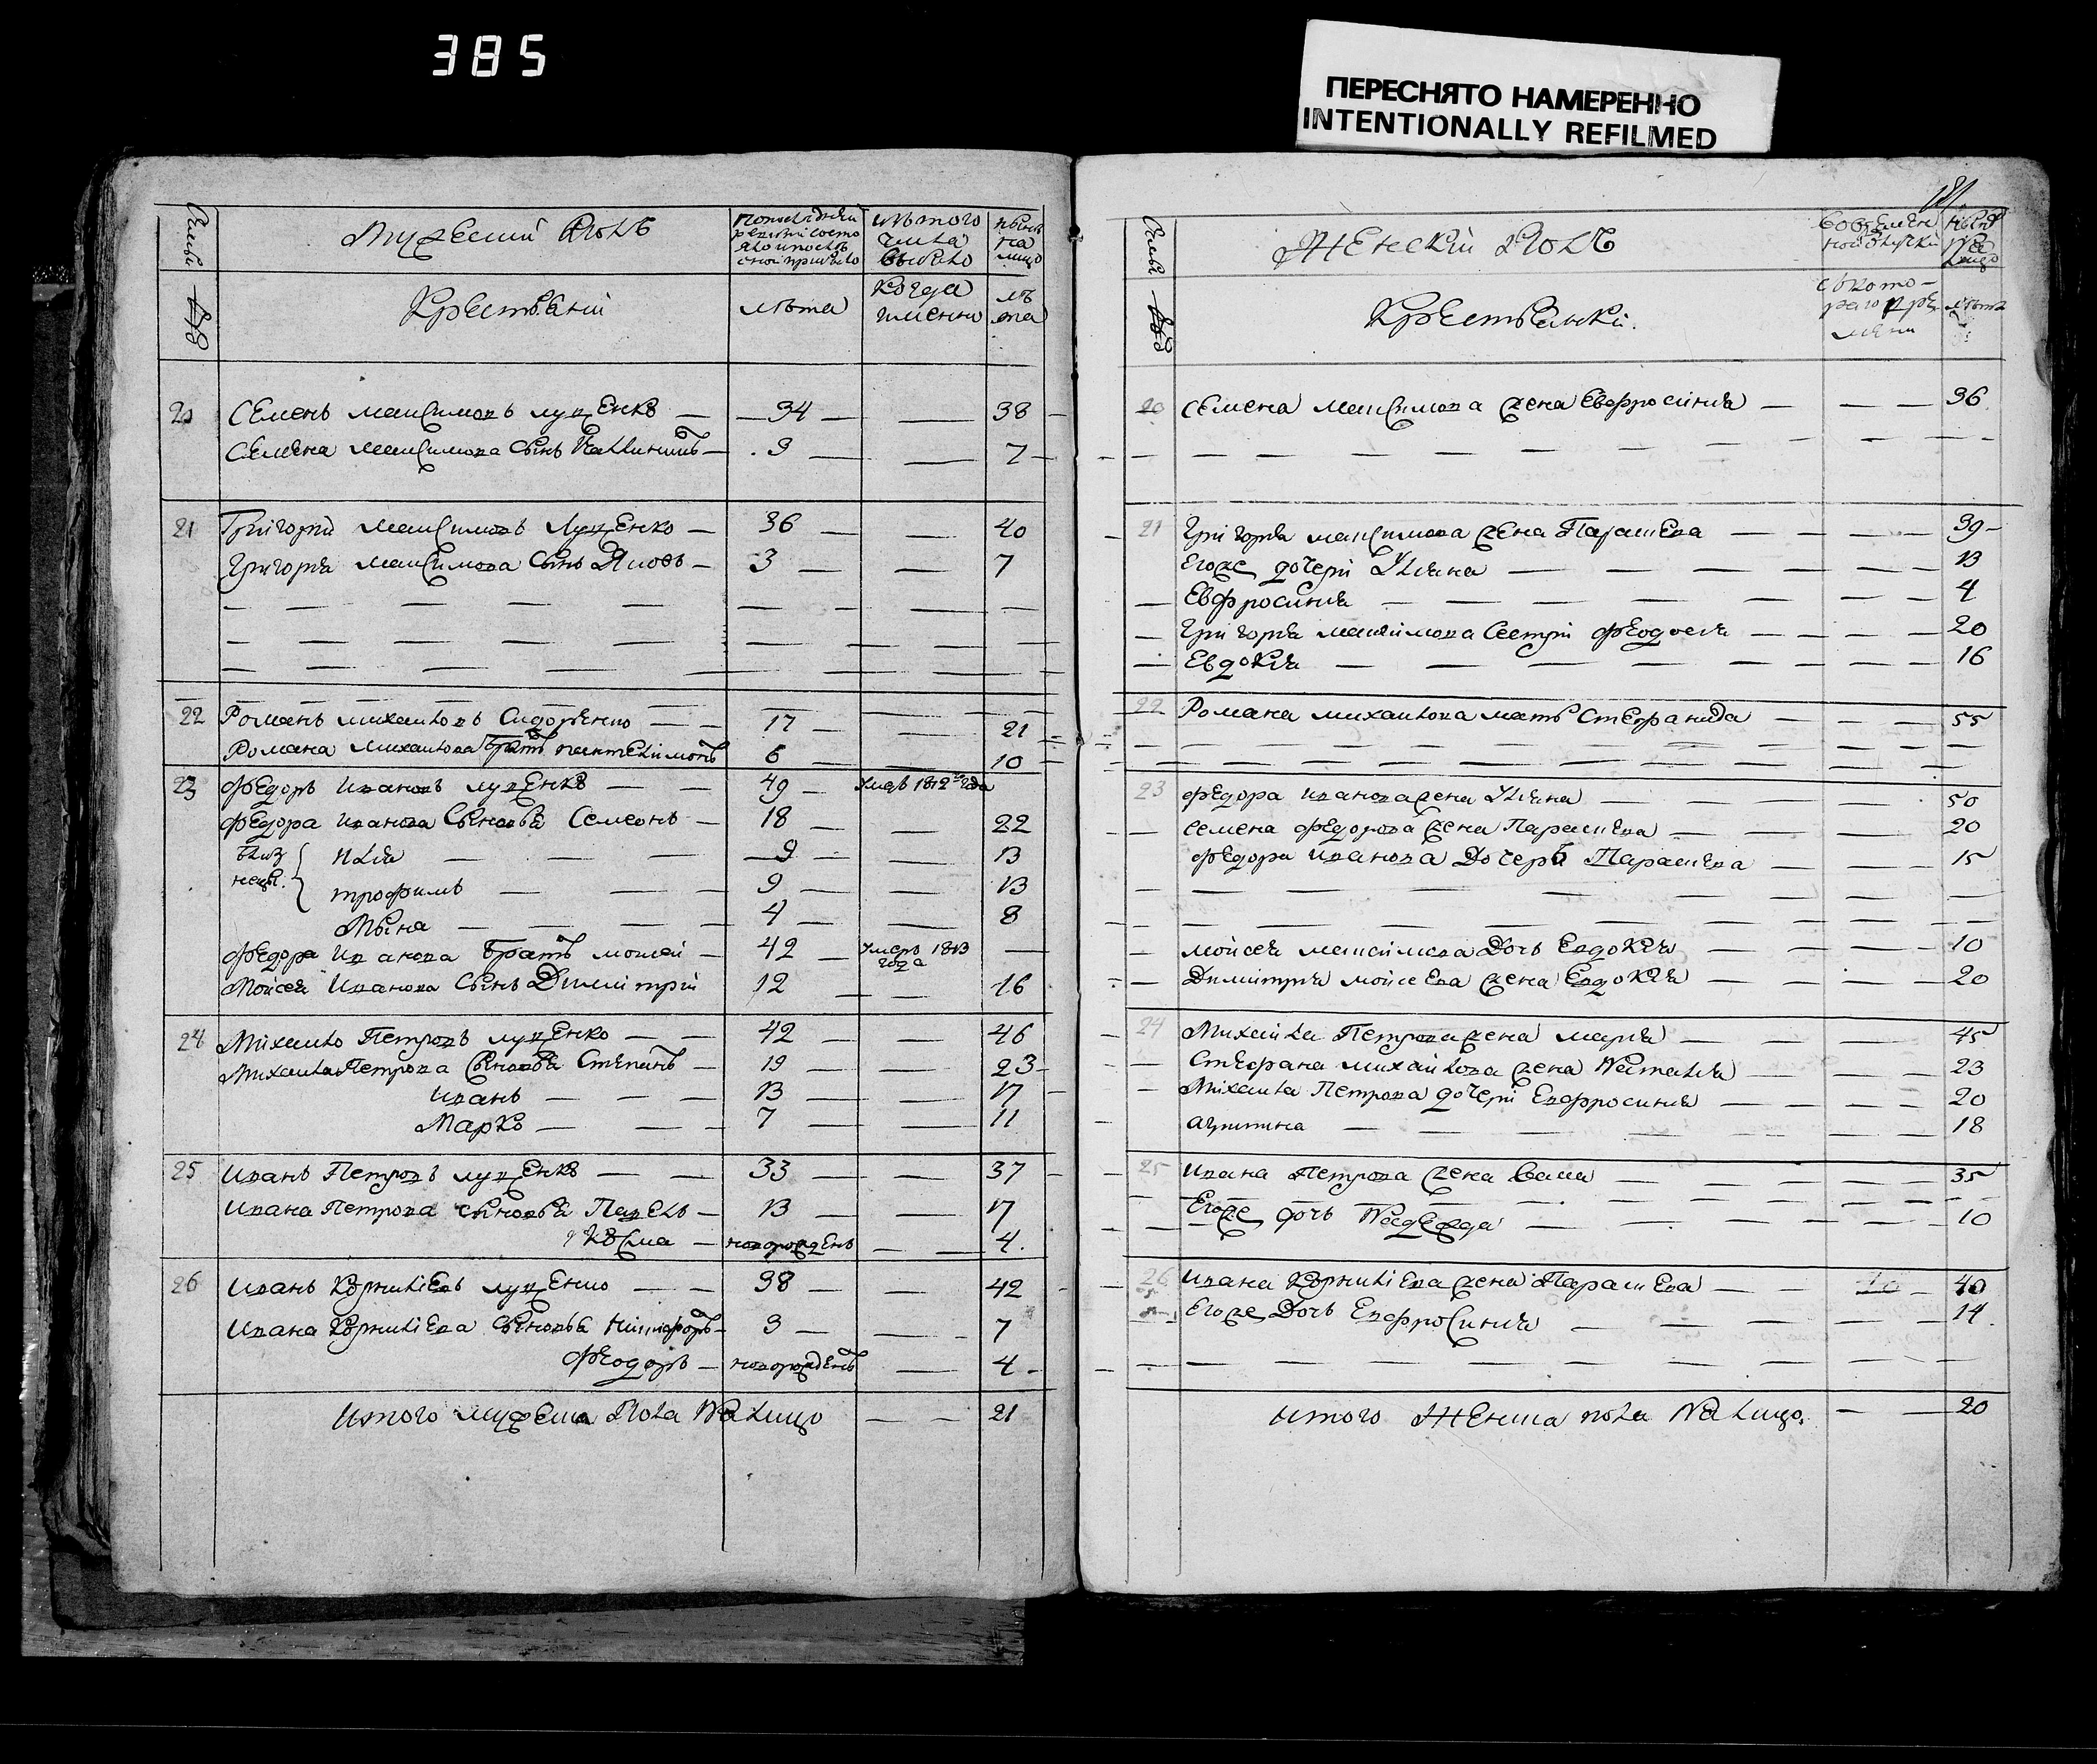 385
ПЕРЕСНЯТО НАМЕРЕННО
INTENTIONALLY REFILMED
Мужеский полъ
лѣта
когда именно
лѣта
20 Семенъ Максимовъ Луценко — 34 — — 38
Семена Максимова сынъ — 3 — — 7
21 Григорий Максимовъ Луценко — 36 — — 40
Григорія Максимова сынъ Яковъ — 3 — — 7
22 Романъ Михайловъ Сидоренко — 17 — — 21
Романа Михайлова братъ Пантелимонъ 6 — — 10
23 Федоръ Ивановъ Луценко — 49 — умеръ 1812 года
Федора Иванова сыновья Семеонъ — 18 — — 22
близнецы Илья — 9 — — 13
Трофимъ — 9 — — 13
Мина — 4 — — 8
Федора Иванова братъ Моисей — 42 — умеръ 1813 года —
Мойсея Иванова сынъ Димитрій 12 — — 16
24 Михайло Петровъ Луценко — 42 — — 46
Михайла Петрова сыновья Степанъ — 19 — — 23
Иванъ — 13 — — 17
Марко — 7 — — 11
25 Иванъ Петровъ Луценко — 33 — — 37
Ивана Петрова сыновья Павелъ — 13 — — 17
Козма — новорожденъ — — 4
26 Иванъ Корнилиевъ Луценко — 38 — — 42
Ивана Корнилиева сыновья Никифоръ — 3 — — 7
Феодоръ — новорожденъ — 4
Итого мужеска пола на лицо — — 21
Женскій полъ
Крестьянки.
лѣта
20 Семена Максимова жена Евфросинія — — — 36
21 Григорія Максимова жена Параскева — — — 39
Егоже дочери Уліяна — — — 13
Евфросинія — — — 4
Григорія Максимова сестри Феодосія — — — 20
Евдокія — — — 16
22 Романа Михайлова мать Стефанида — — — 55
23 Федора Иванова жена Уліяна — — — 50
Семена Федорова жена Параскева — — — 20
Федора Иванова дочерь Параскева — — — 15
Мойсея Максимова дочь Евдокія — — — 10
Димитрія Мойсеева жена Евдокія — — — 20
24 Михайла Петрова жена Марія — — — 45
Стефана Михайлова жена Наталія — — — 23
Михайла Петрова дочери Евфросинія — — — 20
— — — 18
25 Ивана Петрова жена — — — 35
Егоже дочь Надежда — — — 10
26 Ивана Корнилиева жена Параскева — — 40
Егоже дочь Евфросинія — — — 14
Итого женска пола на лицо. — — 20